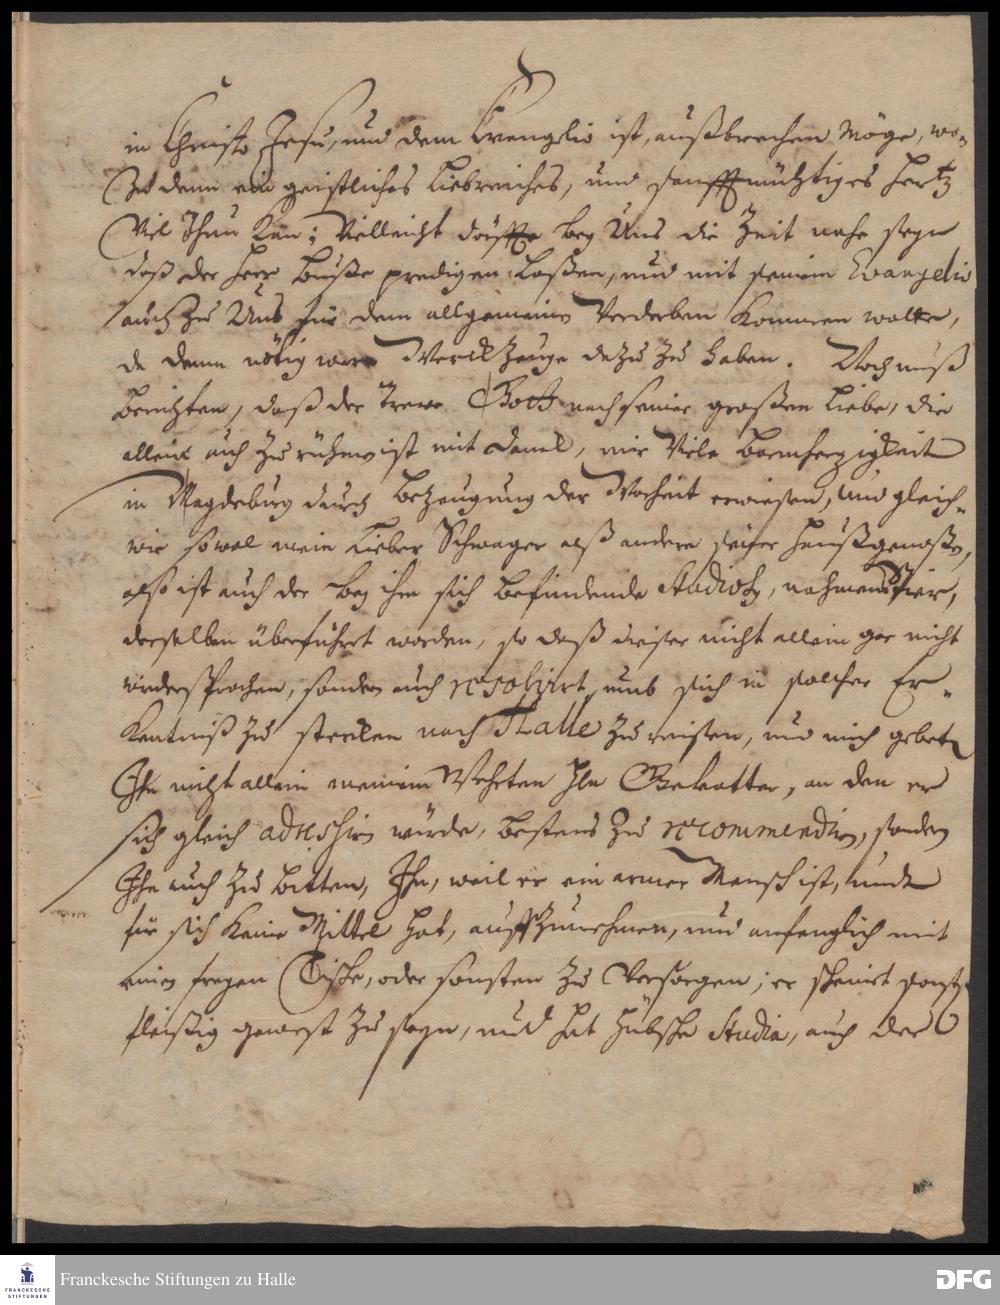 in Christo Jesu, und dem Evangelio ist, außbrechen möge, wo-
Zu denn ein geistliches Liebreiches, und sanfftmüthiges Hertz
Viel Thun Kan; Vielleicht dörffte bey Uns die Zeit nahe seyn
daß der Herr Buße predigen laßen, und mit seinem Evangelio
auch zu Uns für dem allgemeinen Verderben Kommen wolte,
da denn nötig were Werckzeuge dazu zu haben. Noch muß
berichten, daß der Trewe Gott nach seiner großen Liebe, die
allein auch zu rühmen ist mit Danck, mir Viele Barmhertzigkeit
in Magdeburg durch Bezeugung der Warheit erwiesen, und gleich-
wie sowol mein Lieber Schwager alß andere seiner Haußgenoßen,
also ist auch der bey ihm sich befindende Studiosus, nahmens
derselben überführt worden, so daß dieser nicht allein gar nicht
widersprochen, sondern auch resolvirt umb sich in solcher Er-
Kentniß zu stercken nach Halle zu reisen, und mich gebeten
Ihn nicht allein meinem Wehrten Hln Gevatter, an den er
sich gleich adressiren würde, bestens zu recommendiren, sondern
Ihn auch zu bitten, Ihn, weil er ein armer Mensch ist, und
für sich Keine Mittel hat, auffzunehmen, und anfenglich mit
einen freyen Tische, oder sonsten zu Versorgen; er scheint sonst
fleißig gewest zu seyn, und hat hübsche Studia, auch der
Franckesche Stiftungen zu Halle
FRANCKESCHE STIFTUNGEN
DFG